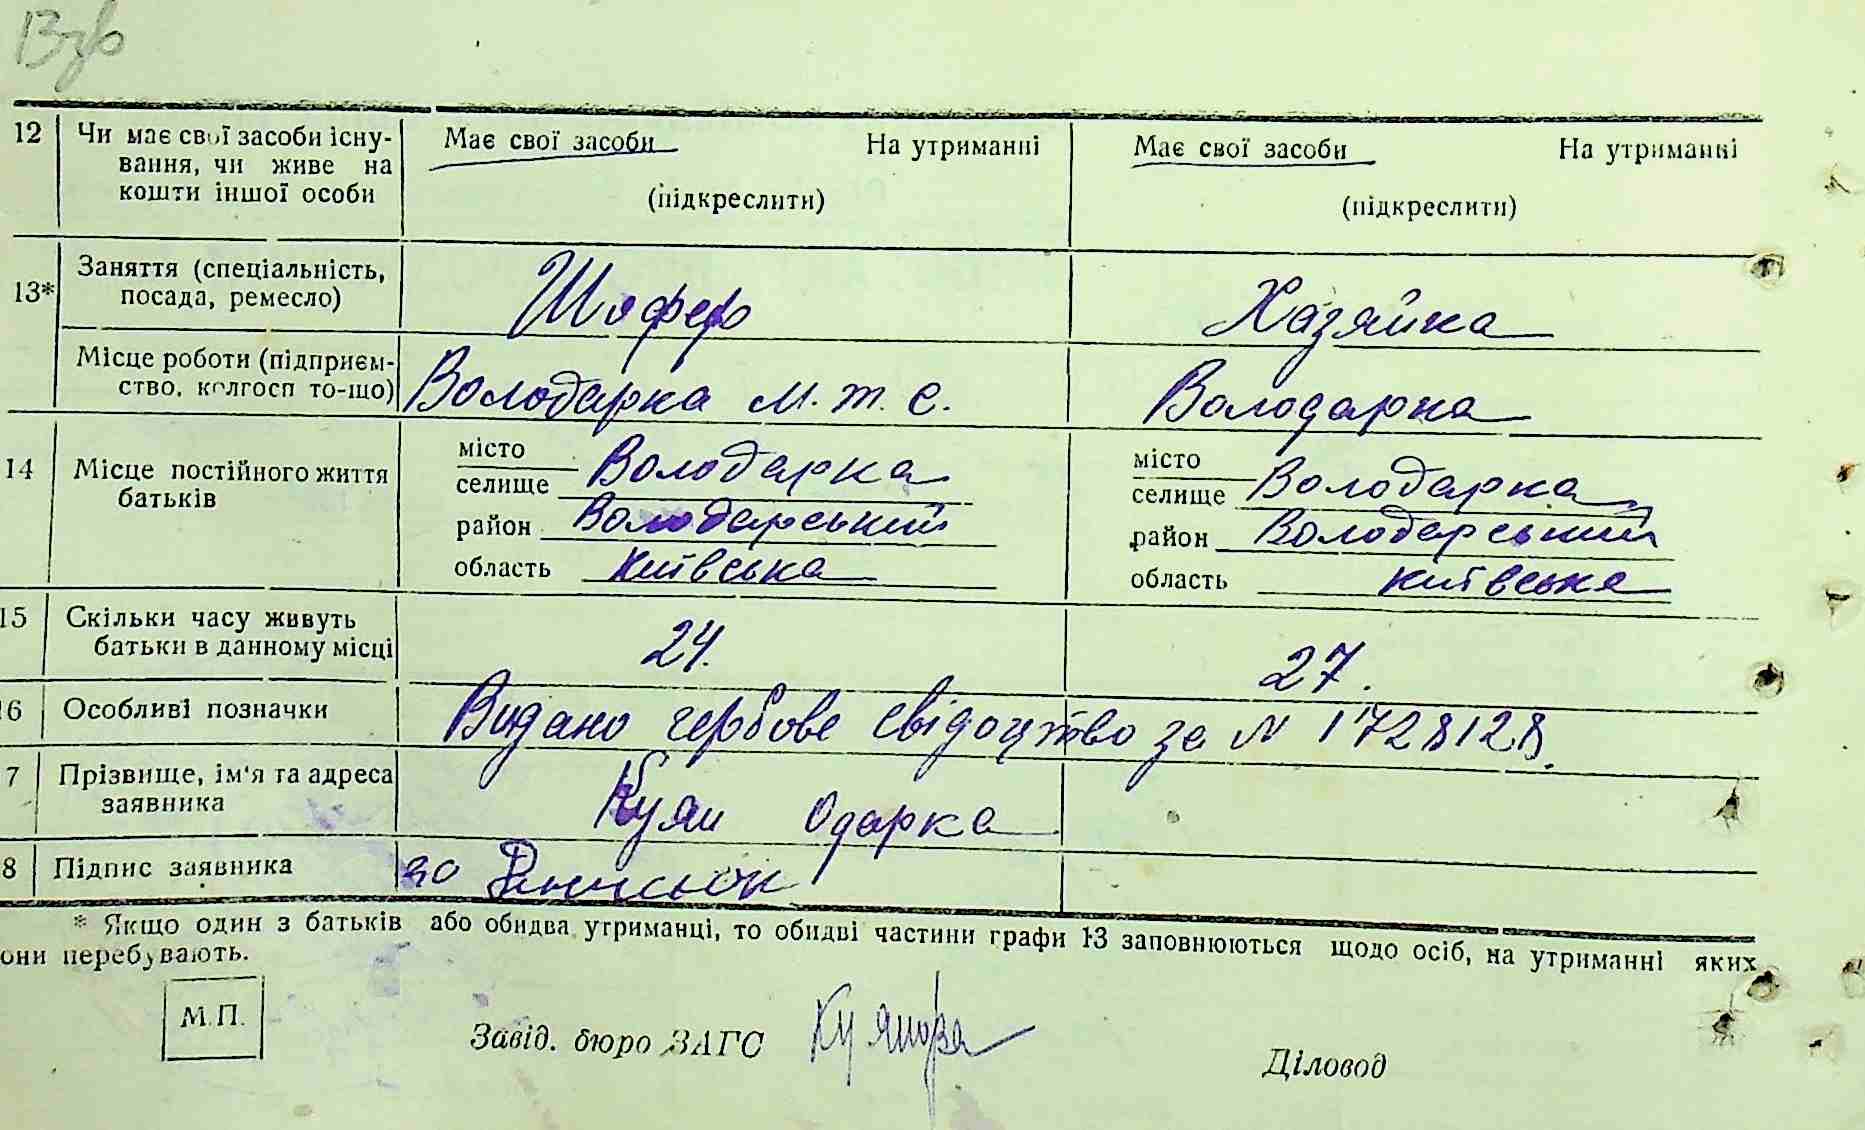 12 Чи має свої засоби існу- Має свої засоби На утриманні Має свої засоби На утриманні
вання, чи живе на
кошти іншої особи (підкреслити) (підкреслити)
13* Заняття (спеціальність, Шофер Хазяйка
посада, ремесло)
Місце роботи (підприєм- Володарка м.т.с. Володарка
ство, колгосп то-що)
14 Місце постійного життя місто Володарка місто Володарка
батьків селище селище
район Володарський район Володарський
область київська область київська
15 Скільки часу живуть 24. 27.
батьки в данному місці
16 Особливі позначки Видано гербове свідоцтво за N 1728128.
7 Прізвище, ім'я та адреса Куян Одарка
заявника
8 Підпис заявника за
* Якщо один з батьків або обидва утриманці, то обидві частини графи 13 заповнюються щодо осіб, на утриманні яких
они перебувають.
М.П. Завід. бюро ЗАГС Куянова Діловод